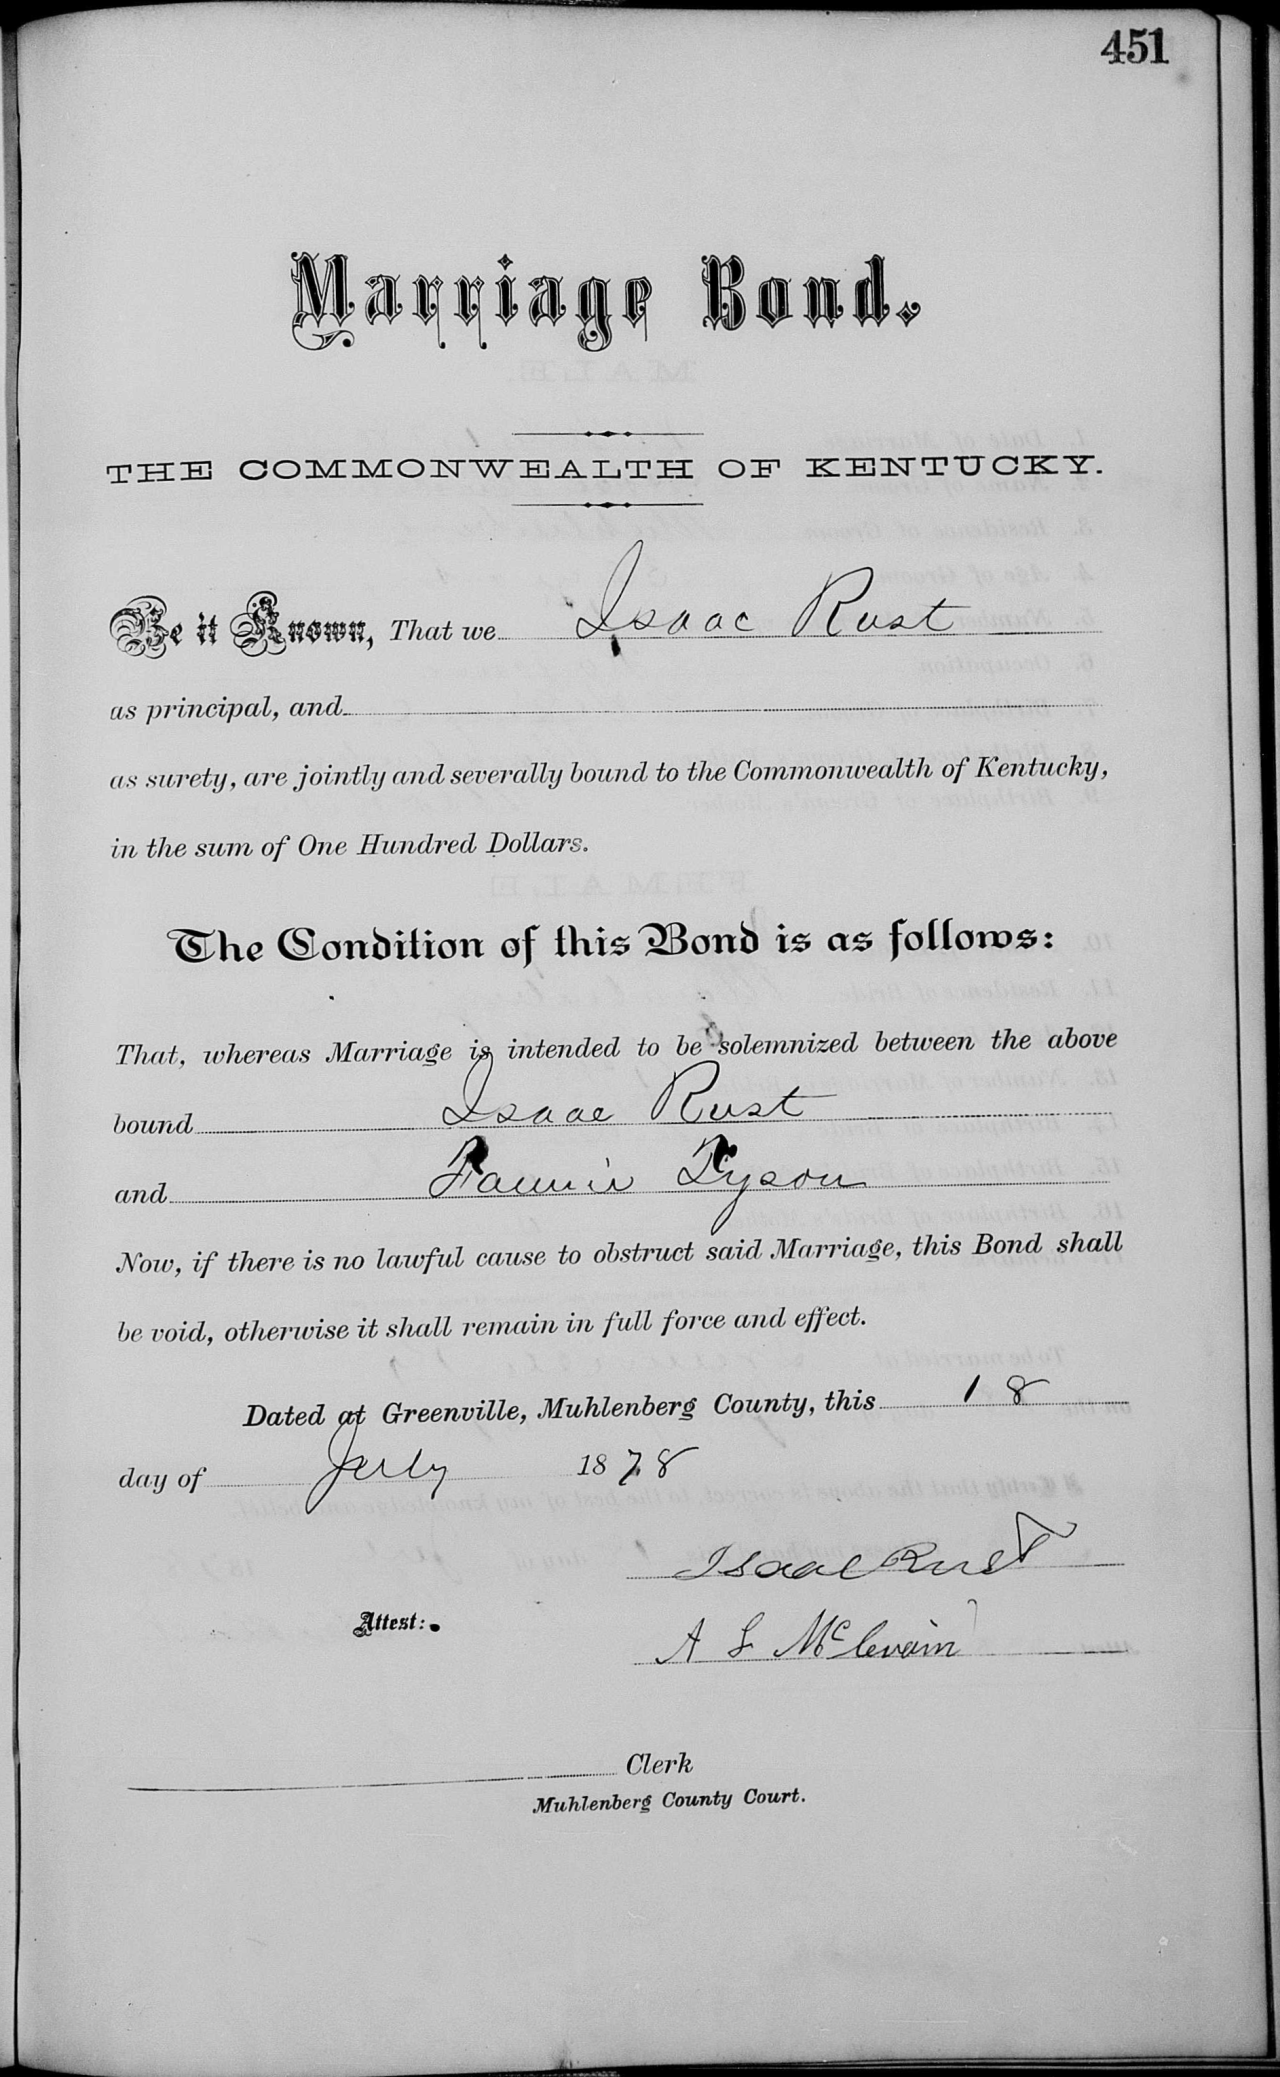 451
Marriage Bond.
THE COMMONWEALTH OF KENTUCKY.
Be it Known, That we Isaac Rust
as principal, and
as surety, are jointly and severally bound to the Commonwealth of Kentucky,
in the sum of One Hundred Dollars.
The Condition of this Bond is as follows:
That, whereas Marriage is intended to be solemnized between the above
bound Isaac Rust
and Fannie Tyson
Now, if there is no lawful cause to obstruct said Marriage, this Bond shall
be void, otherwise it shall remain in full force and effect.
Dated at Greenville, Muhlenberg County, this 18
day of July 1878
Isaac Rust
Attest:
A L
Clerk
Muhlenberg County Court.